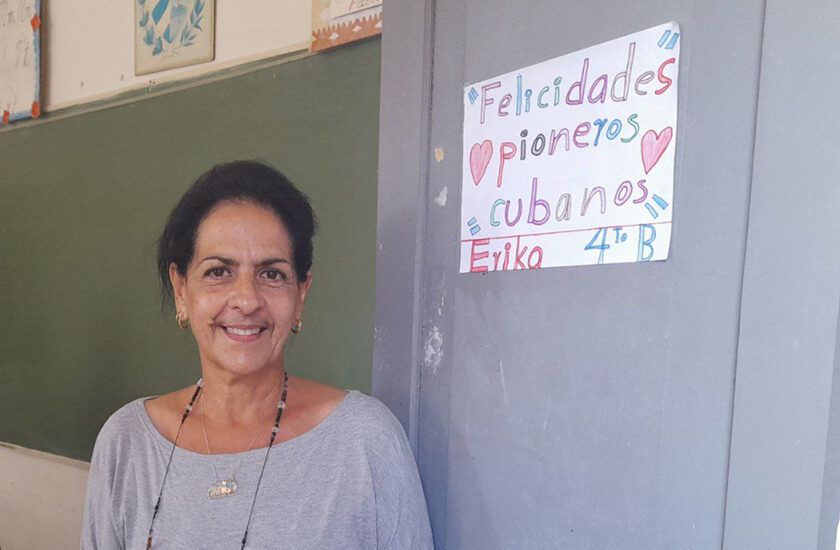 Felicidades
pioneros
cubanos
Erika 4to B